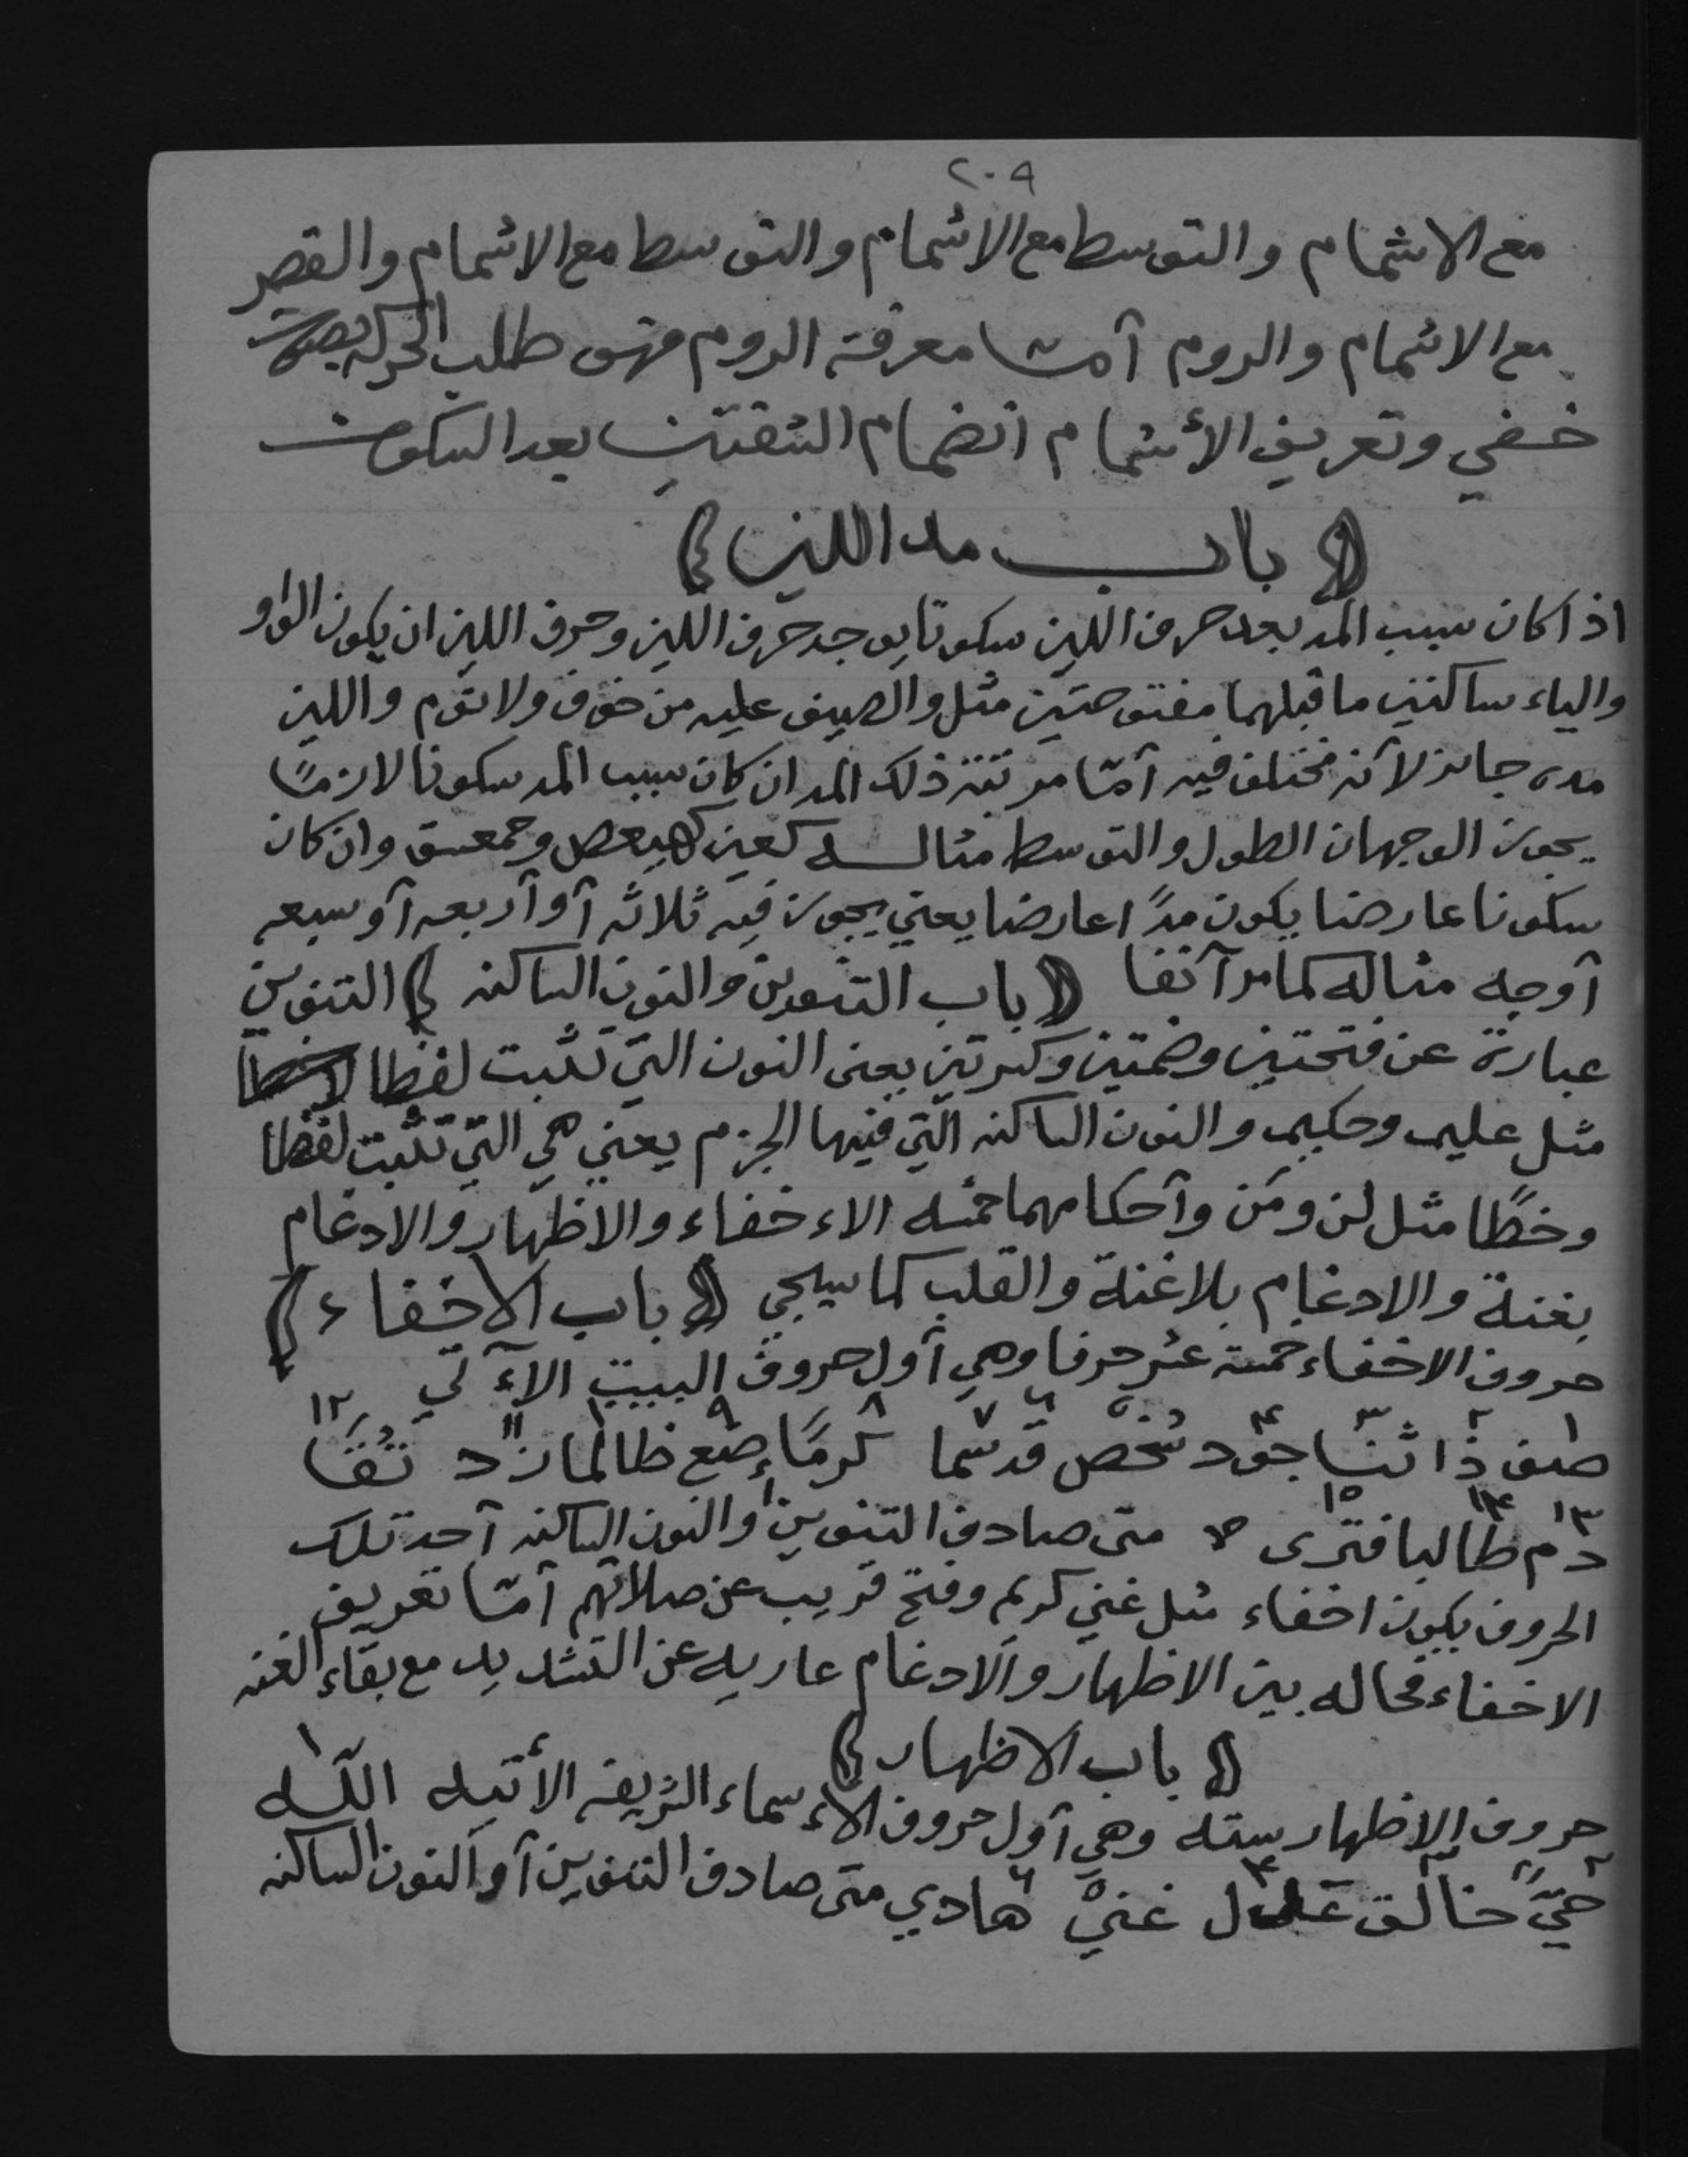 ٢٠٩
مع الاشمام والتوسط مع الاشمام والتوسط مع الاشمام والقصر
مع الاشمام والروم آمّا معرفة الروم فهو طلب الحركه بصوت
خفي وتعريف الأشمام انضمام الشفتين بعد السكون
﴿ باب مد اللين ﴾
اذا كان سبب المد بعد حرف اللين سكونا يوجد حرف اللين وحرف اللين ان يكون الواو
والياء ساكنين ما قبلهما مفتوحتين مثل والصيف عليه من خوف ولا نوم واللين
مده جائز لآنه مختلف فيه آمّا مرتبة ذلك المد ان كان سبب المد سكونا لازمًا
يجوز الوجهان الطول والتوسط مثاله كعين كهيعص وحمعسق وان كان
سكونا عارضا يكون مدًا عارضا يعني يجوز فيه ثلاثه آو آربعه آو سبعه
آوجه مثاله كما مر آنفا ﴿ باب التنوين والنون الساكنه ﴾ التنوين
عبارة عن فتحتين وضمتين وكسرتين يعنى النون التي تثبت لفظا لا خطا
مثل عليم وحكيم والنون الساكنه الّتي فيها الجزم يعني هي التي تثبت لفظا
وخطًا مثل لن ومن وآحكامهما خمسه الاءخفاء والاظهار والادغام
بغنة والادغام بلاغنة والقلب كما سيجي ﴿ باب الاخفاء ﴾
حروف الاخفاء خمسة عشر حرفا وهي آول حروف البيت الآءتي
١ ٢ ٣ ٤ ٥ ٦ ٧ ٨ ٩ ١٠ ١١ ١٢
صف ذا ثنا جود شخص قد سما كرمًا ضع ظالما زد تقًا
١٣ ١٤ ١٥
دم طالبا فترى متى صادف التنوين والنون الساكنه آحد تلك
الحروف يكون اخفاء مثل غني كريم وفتح قريب عن صلاتهم آمّا تعريف
الاخفاء فحاله بين الاظهار والادغام عاريه عن التشديد مع بقاء الغنه
﴿ باب الاظهار ﴾
حروف الاظهار سته وهي آول حروف الاءسماء الشريفه الأتيه اللّه
حيّ خالق عدل غنيّ هادي متى صادف التنوين آو النون الساكنه